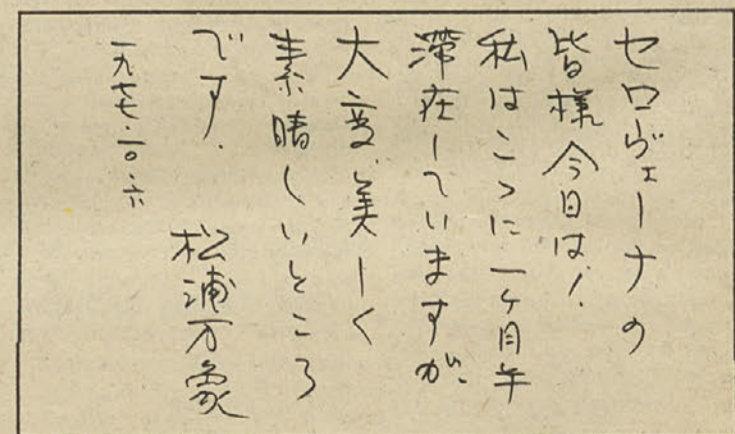 セロヴェーナの
皆様今日は！
私はここに一ヶ月半
滞在していますが、
大変美しく
素晴しいところ
です．
松浦万象
一九七七・一〇・六